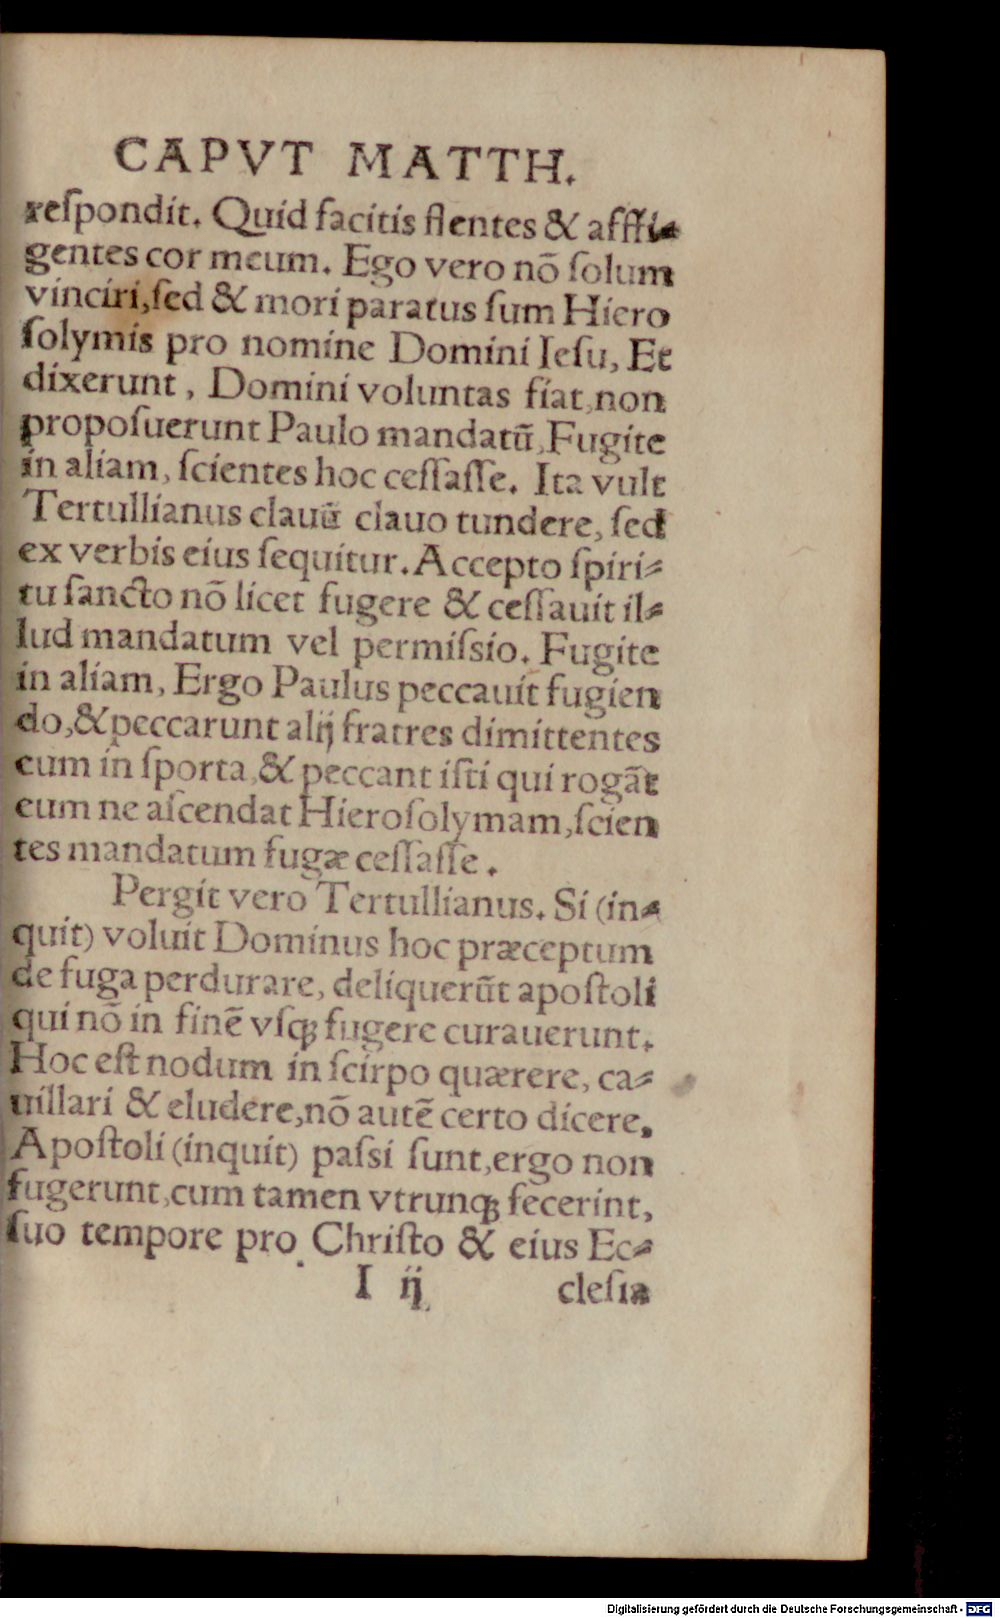 CAPVT MATTH.
reſpondit. Quid facitis flentes & affli⸗
gentes cor meum. Ego vero nõ ſolum
vinciri, ſed & mori paratus ſum Hiero
ſolymis pro nomine Domini Ieſu, Et
dixerunt, Domini voluntas fiat, non
propoſuerunt Paulo mandatũ, Fugite
in aliam, ſcientes hoc ceſſaſſe. Ita vult
Tertullianus clauũ clauo tundere, ſed
ex verbis eius ſequitur. Accepto ſpiri⸗
tu ſancto nõ licet fugere & ceſſauit il⸗
lud mandatum vel permiſsio. Fugite
in aliam, Ergo Paulus peccauit fugien
do, & peccarunt alij fratres dimittentes
eum in ſporta, & peccant iſti qui rogãt
eum ne aſcendat Hieroſolymam, ſcien
tes mandatum fugæ ceſſaſſe.
Pergit vero Tertullianus. Si (in⸗
quit) voluit Dominus hoc præceptum
de fuga perdurare, deliquerũt apoſtoli
qui nõ in finẽ vſqꝫ fugere curauerunt.
Hoc eſt nodum in ſcirpo quærere, ca⸗
uillari & eludere, nõ autẽ certo dicere.
Apoſtoli (inquit) paſsi ſunt, ergo non
fugerunt, cum tamen vtrunqꝫ fecerint,
ſuo tempore pro Chriſto & eius Ec⸗
I ij cleſia
Digitalisierung gefördert durch die Deutsche Forschungsgemeinschaft - DFG